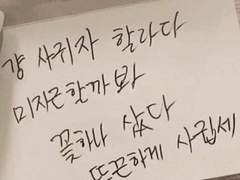 걍 사귀자 할라다
미지근할까봐
꽃하나 샀다
뜨끈하게 사랍세